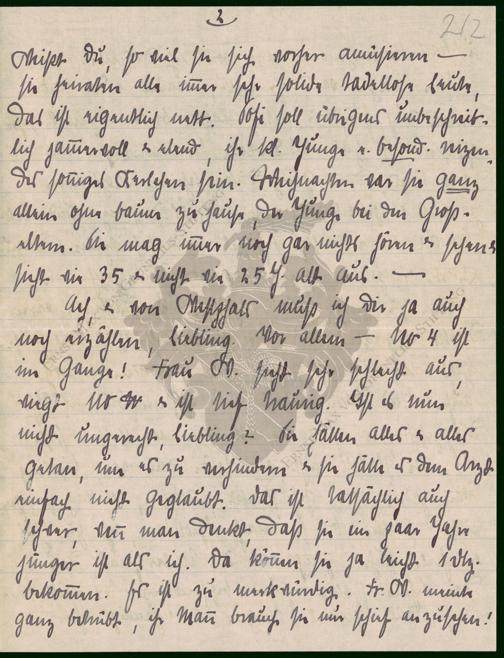 2
212
Weißt Du, so viel sie sich vorher amüsieren —
sie heiraten alle im̄er sehr solide tadellose Leute,
das ist eigentlich nett. Sofi soll übrigens unbeschreib-
lich jam̄ervoll & elend, ihr kl. Junge e. besond. reizen-
des son̄iges Kerlchen sein. Weihnachten war sie ganz
allein ohne baum zu hause, der Junge bei den Groß-
eltern. Sie mag im̄er noch gar nichts hören & sehen &
sieht wie 35 & nicht wie 25 J. alt aus. —
Ach, & von Westphals muß ich dir ja auch
noch erzählen, Liebling. Vor allem — No 4 ist
im Gange! Frau W. sieht sehr schlecht aus,
wiegt & ist tief traurig. Ist es nun
nicht ungerecht, Liebling? Sie hätten alles & alles
getan, um es zu verhindern & sie hätte es dem Arzt
einfach nicht geglaubt. Das ist tatsächlich auch
schwer, wen̄ man denkt, daß sie ein paar Jahre
jünger ist als ich. Da kön̄en sie ja leicht 1 dtz.
bekom̄en. Es ist zu merkwürdig. Fr. W. meinte
ganz betrübt, ihr Man̄ brauche sie nur schief anzusehen!